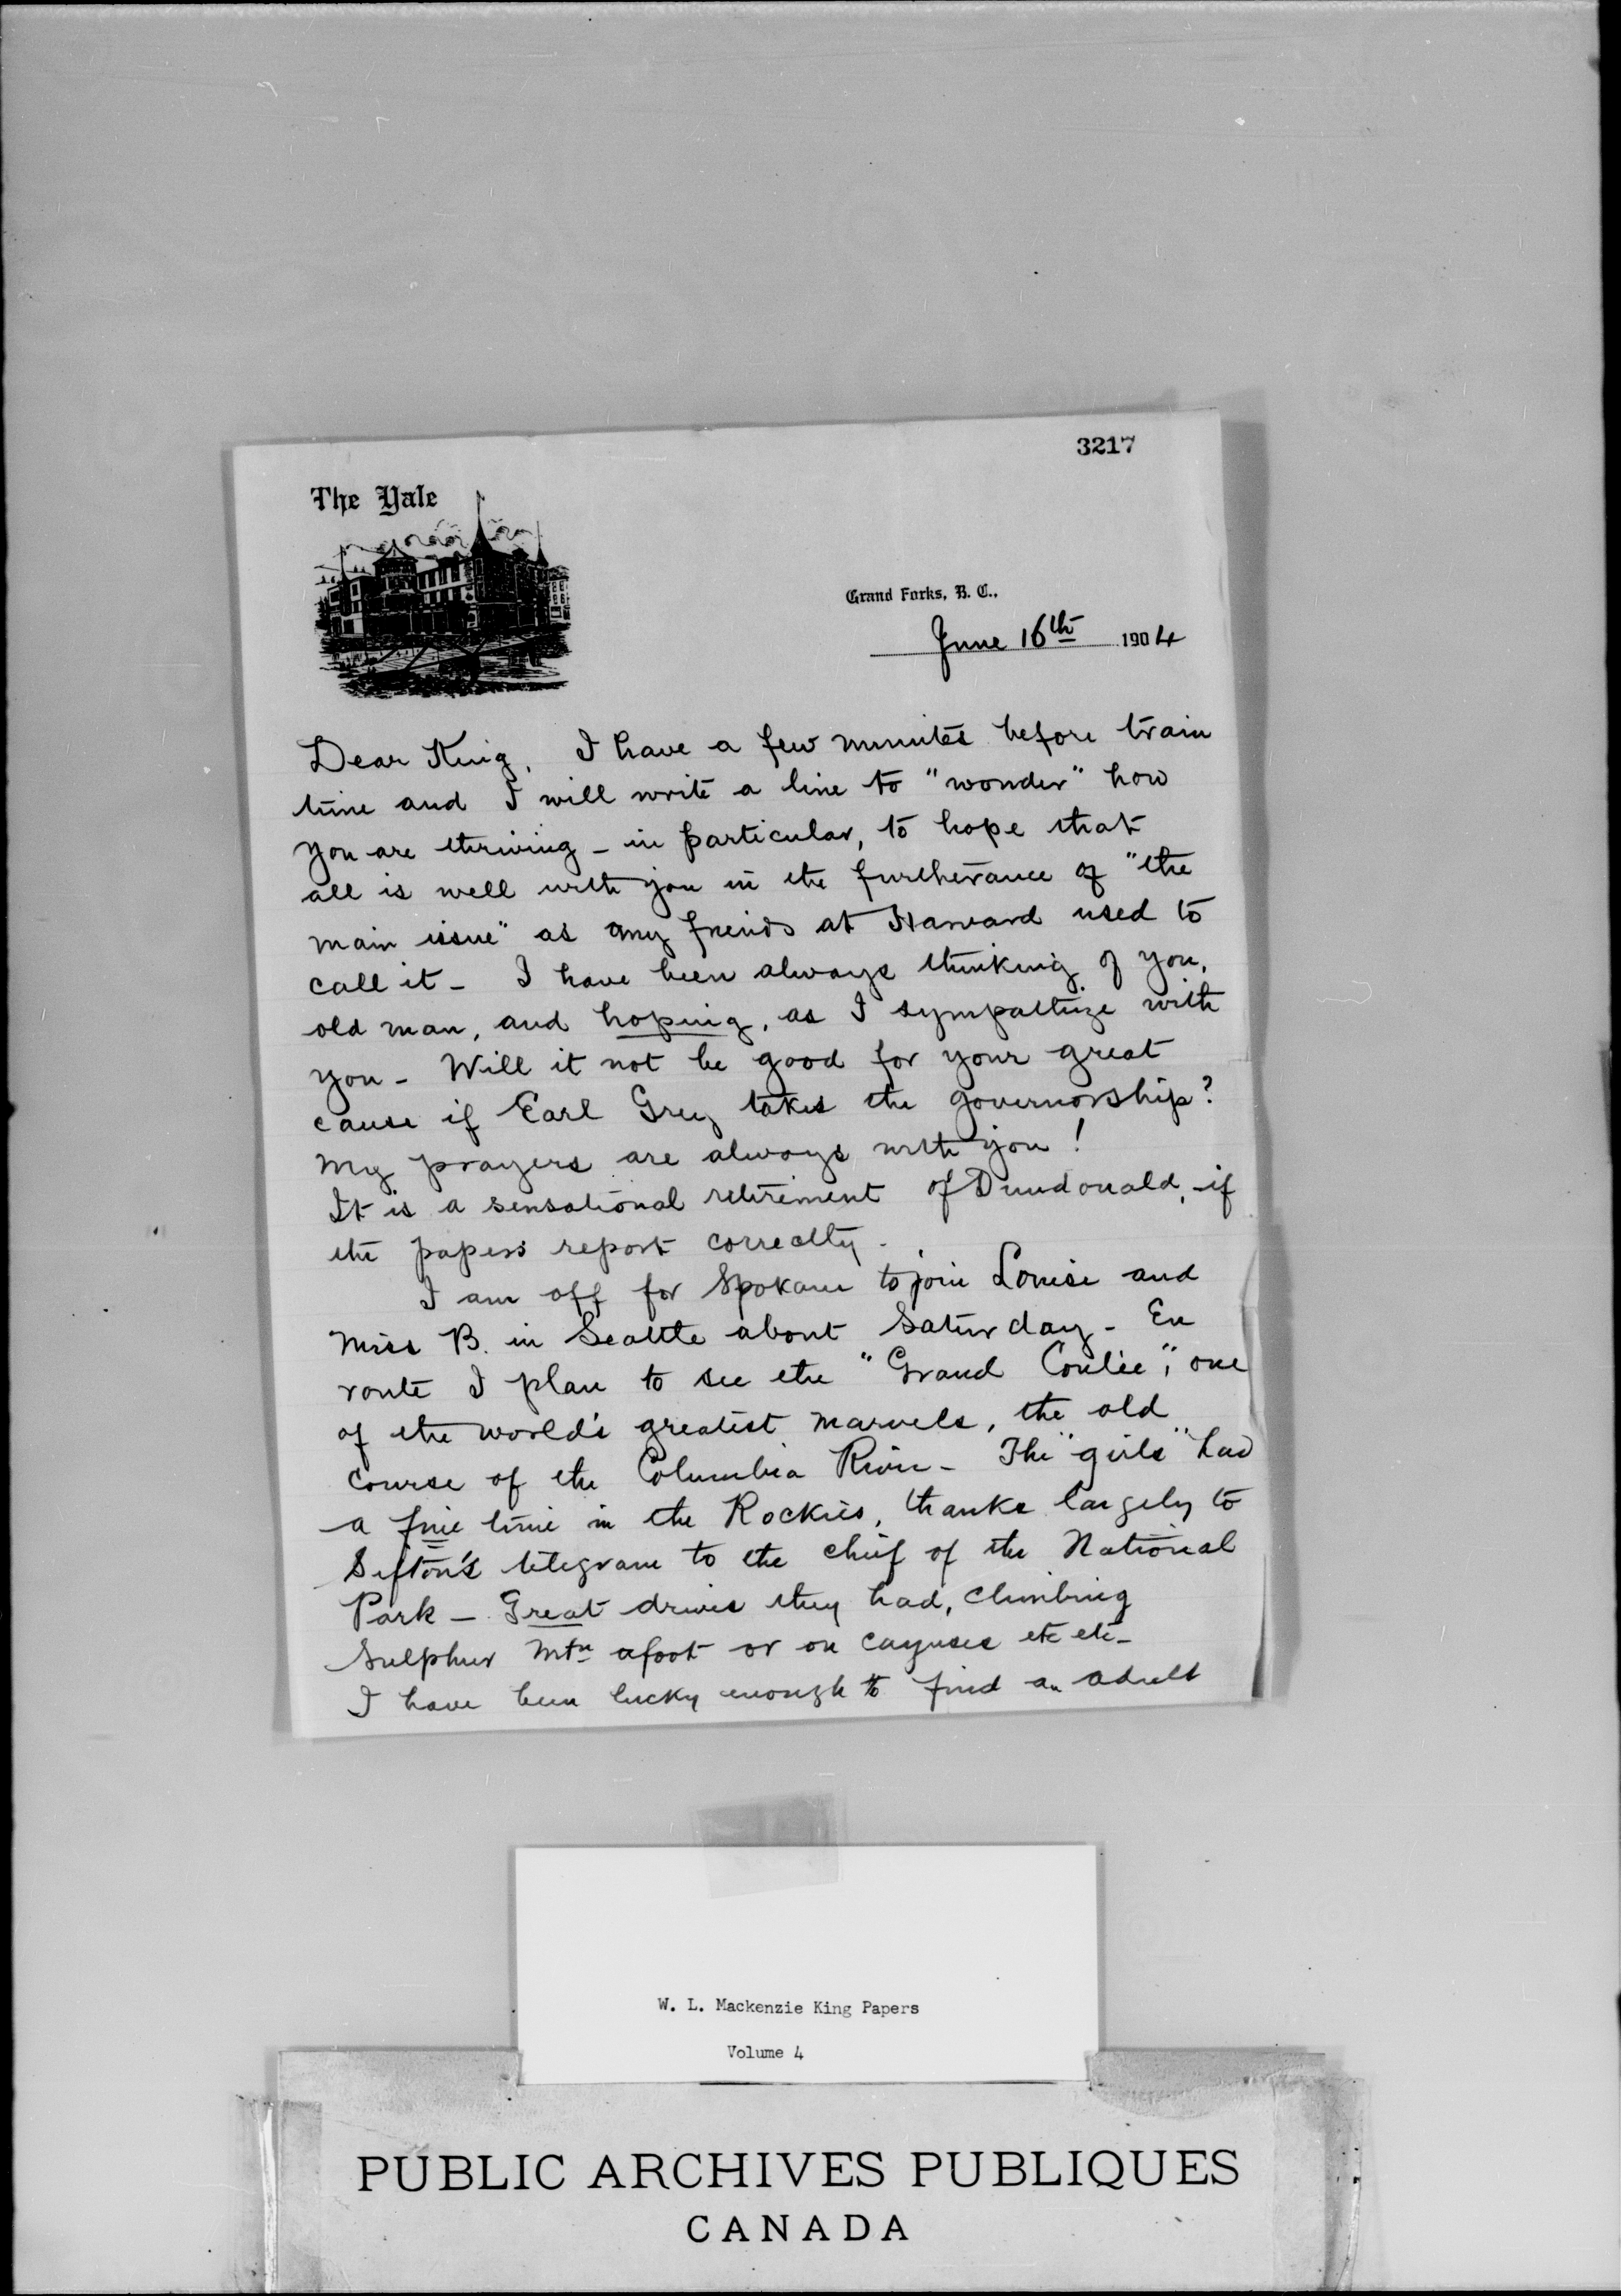 3217
The Yale
Grand Forks, B. C.,
June 16th 1904
Dear King, I have a few minutes before train
time and I will write a line to "wonder" how
you are thriving - in particular, to hope that
all is well with you in the furtherance of "the
main issue" as my friends at Harvard used to
call it - I have been always thinking of you,
old man, and hoping, as I sympathize with
you - Will it not be good for your great
cause if Earl Grey takes the governorship?
My prayers are always with you!
It is a sensational retirement of Dundonald, if
the papers report correctly.
I am off for Spokane to join Louise and
Miss B. in Seattle about Saturday - En
route I plan to see the "Grand Coulée", one
of the world's greatest marvels, the old
course of the Columbia River - The "girls" had
a fine time in the Rockies, thanks largely to
Sifton's telegram to the chief of the National
Park - Great drives they had, climbing
Sulphur Mtn afoot or on cayuses etc etc -
I have been lucky enough to find an adult
W. L. Mackenzie King Papers
Volume 4
PUBLIC ARCHIVES PUBLIQUES
CANADA